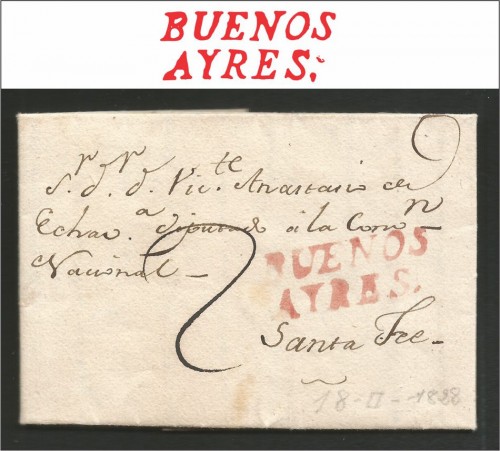 BUENOS
AYRES.
S.r D.r D. Vic.te Anastacio de
Echav.a diputado á la Conv.n
Nacional
2
BUENOS
AYRES.
Santa Fee
18-II-1828